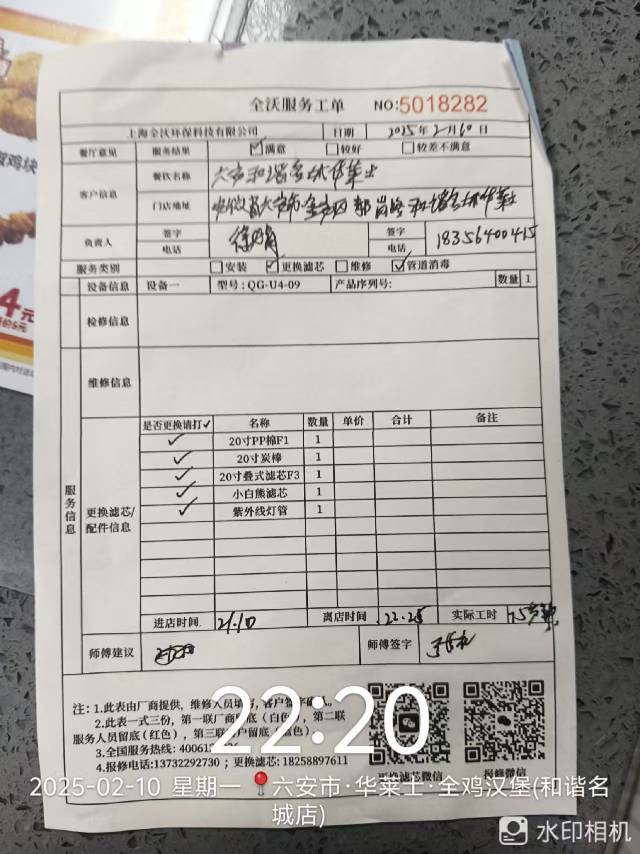 全沃服务工单 NO:5018282
上海全沃环保科技有限公司 日期 2025年2月10日
餐厅意见 服务结果 ☑满意 □较好 □较差不满意
客户信息 餐饮名称 六安和谐名城华莱士
门店地址
负责人 签字 签字
电话 电话 18356400415
服务类别 □安装 ☑更换滤芯 □维修 ☑管道消毒
设备信息 设备一 型号:QG-U4-09 产品序列号: 数量 1
检修信息
维修信息
服务信息
更换滤芯/配件信息
是否更换请打✓ 名称 数量 单价 合计 备注
✓ 20寸PP棉F1 1
✓ 20寸炭棒 1
✓ 20寸叠式滤芯F3 1
✓ 小白熊滤芯 1
✓ 紫外线灯管 1
进店时间 21.10 离店时间 22.25 实际工时
师傅建议 师傅签字
注:1.此表由厂商提供,维修人员填写,客户签字确认。
2.此表一式三份,第一联厂商留底(白色),第二联
服务人员留底(红色),第三联客户留底(蓝色)
3.全国服务热线:
4.报修电话:13732292730;更换滤芯:18258897611
更换滤芯微信 报修微信
22:20
2025-02-10 星期一 六安市·华莱士·全鸡汉堡(和谐名
城店)
水印相机
鸡块
4元